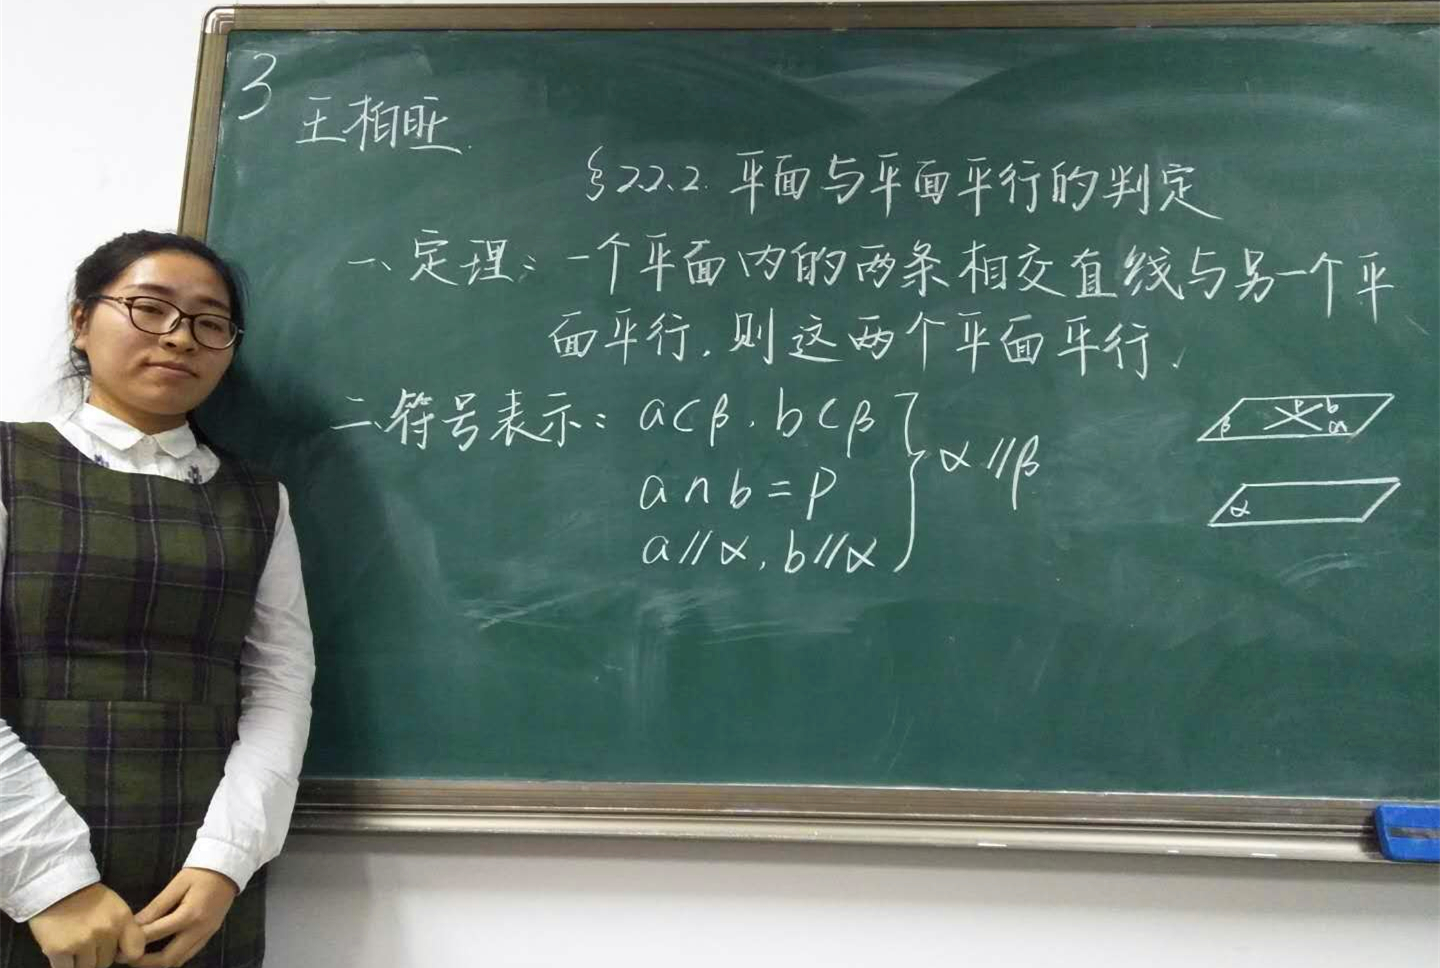 3
王相旺
§2.2.2. 平面与平面平行的判定
一、定理：一个平面内的两条相交直线与另一个平
面平行，则这两个平面平行．
二、符号表示：a⊂β，b⊂β
a∩b=P
a//α，b//α
α//β
P b
β a
α